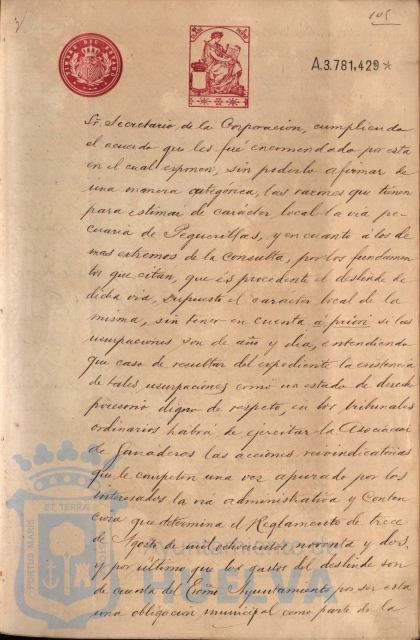 105
TIMBRE DEL ESTADO
A.3.781,429*
Sr. Secretario de la Corporacion, cumpliendo
el acuerdo que les fué encomendado por esta
en el cual exponen, sin poderlo afirmar de
una manera categórica, las razones que tienen
para estimar de carácter local la via pe-
cuaria de Peguerillas, y en cuanto á los de
mas extremos de la Consulta, por los fundamen
tos que citan, que es procedente el deslinde de
dicha via, supuesto el carácter local de la
misma, sin tener en cuenta á priori si las
usurpaciones son de año y dia, entendiendo
que caso de resultar del expediente la existencia
de tales usurpaciones como un estado de derecho
posesorio digno de respeto, en los tribunales
ordinarios habrá de ejercitar la Asociacion
de Ganaderos las acciones reivindicatorias
que le competen una vez apurado por los
interesados la via administrativa y Conten
ciosa que determina el Reglamento de trece
de Agosto de mil ochocientos noventa y dos,
y por ultimo que los gastos del deslinde son
de cuenta del Excmo Ayuntamiento por ser esta
una obligacion municipal como parte de la
PORTUS MARIS ET TERRAE
Ayuntamiento de
HUELVA